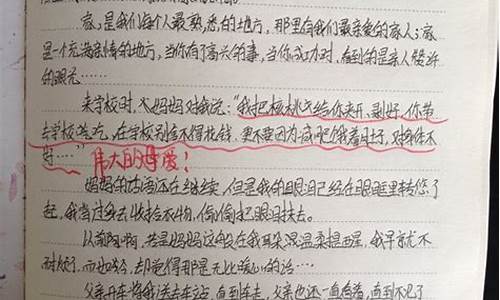 家,是我们每个人最熟悉的地方,那里有我们最亲爱的家人;家
是一个充满亲情的地方,当你有了高兴的事,当你成功时,看到的是亲人赞许
的眼光……
来学校时,妈妈对我说:“我把核桃给你夹开,剥好,你带
去学校吃,在学校别舍不得花钱,更不要因为减肥饿着肚子,对身体不
好……”伟大的母爱!
妈妈的话还在继续,但是我的眼泪已经在眼眶里转悠了
起,我当过去收拾衣物,偷偷把眼泪抹去。
以前啊,若是妈妈这般在我耳朵温柔提醒,我早就不
耐烦了,而如今,却觉得那是无比暖心的话……
父亲开车将我送去车站,直到车走,父亲也还一直看着,直到不见了